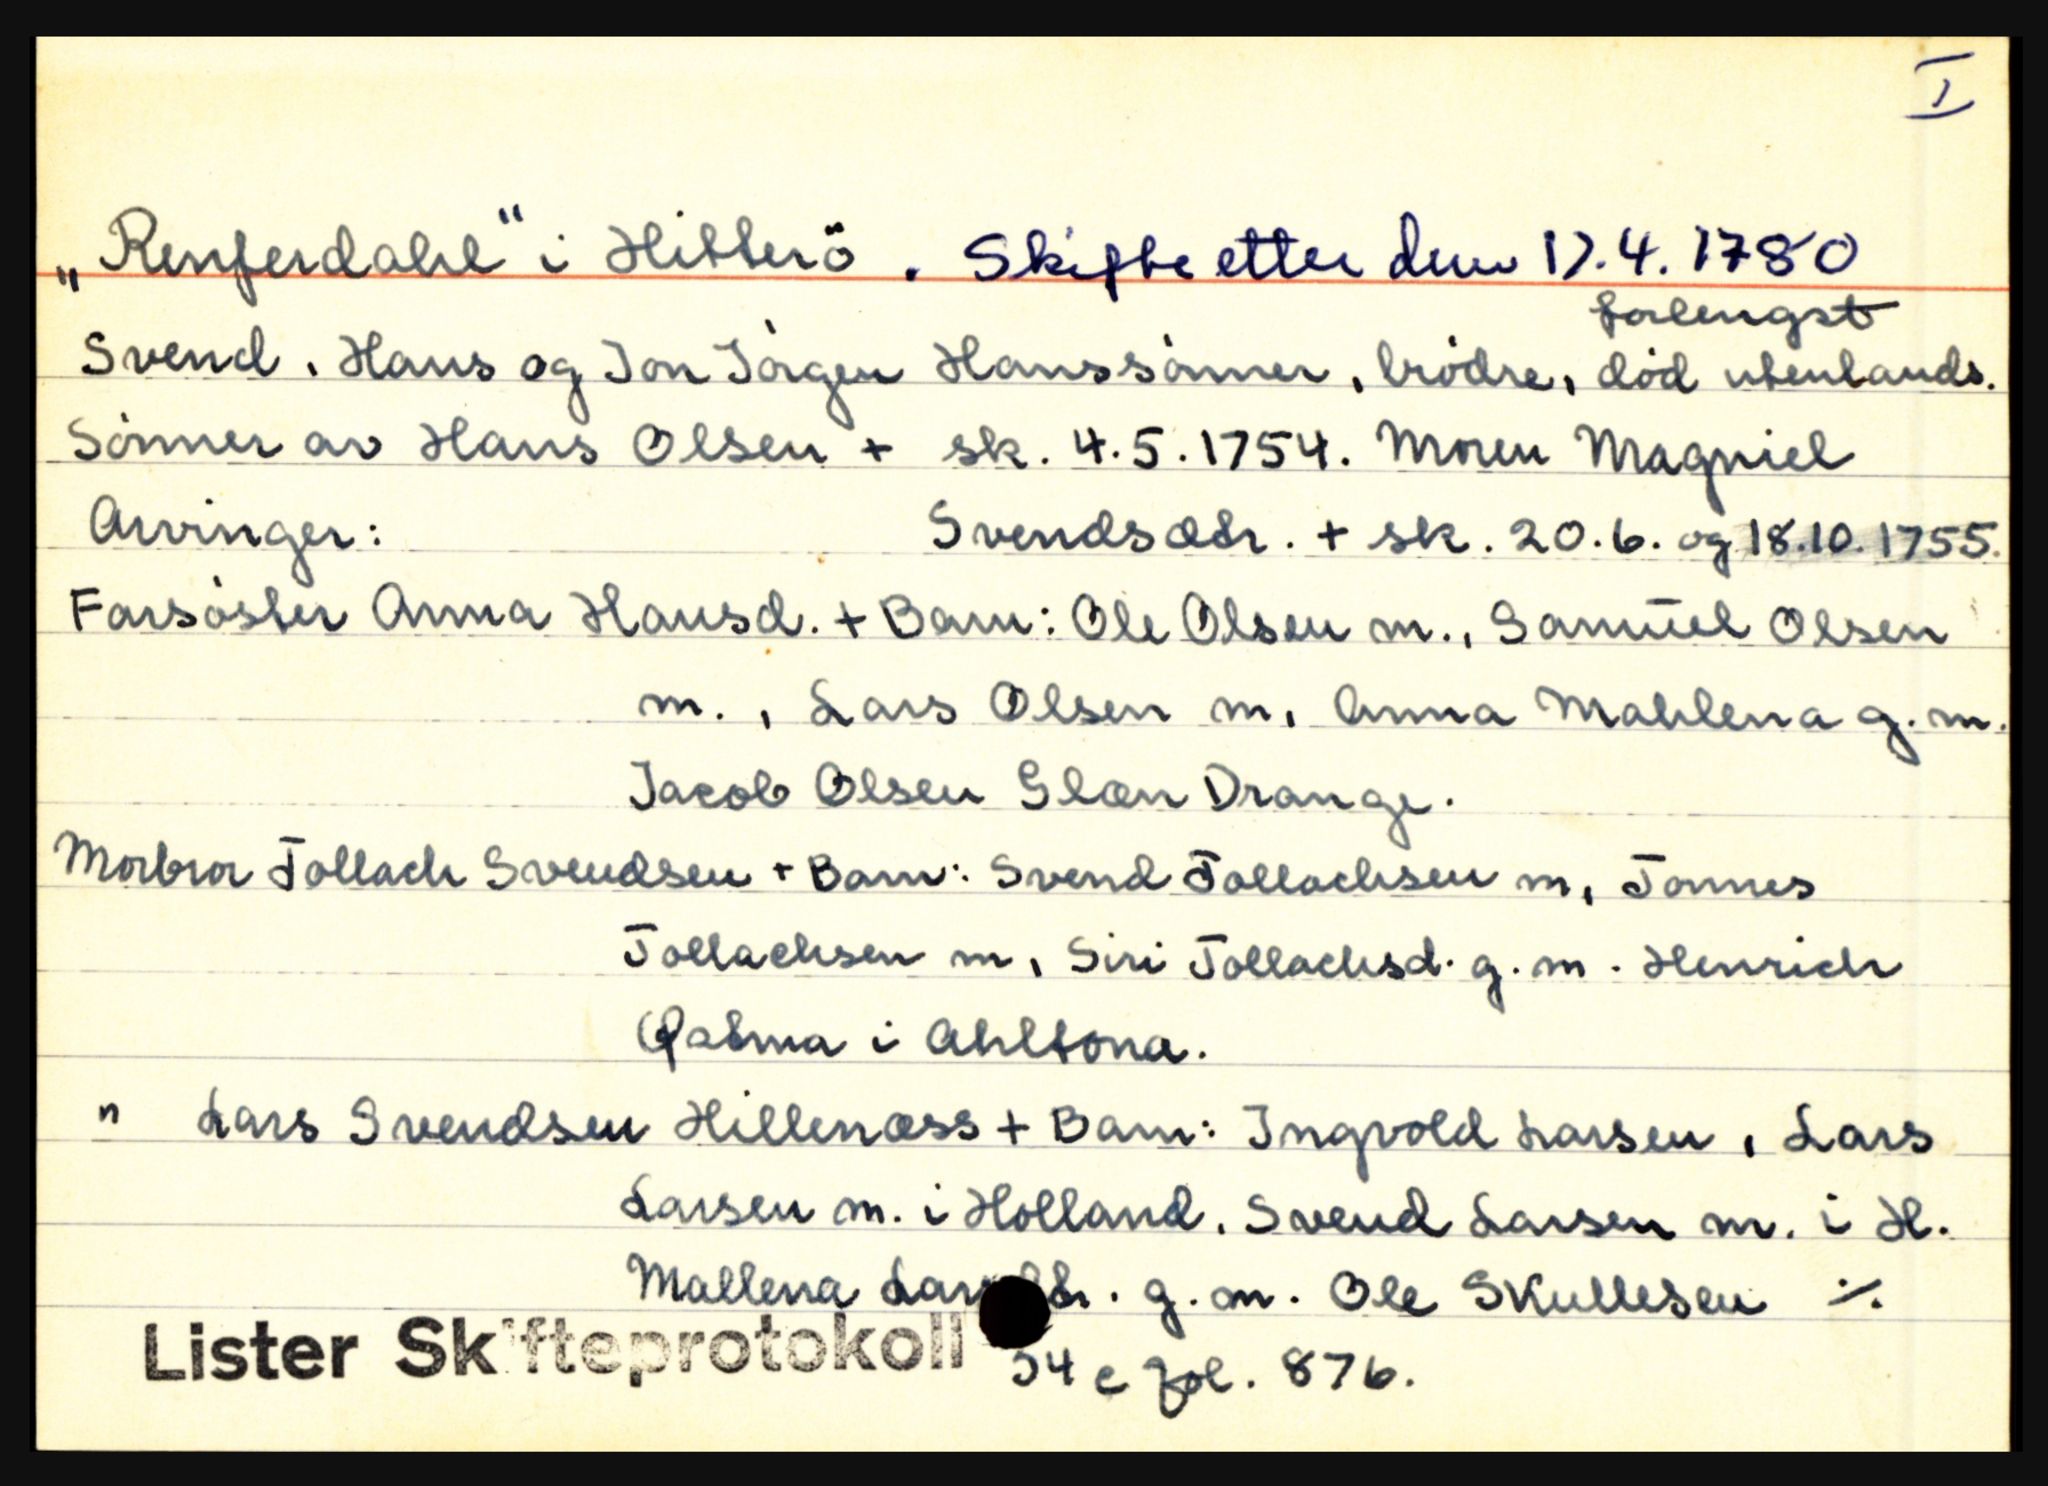 I
„Renferdahl“ i Hitterö. Skifte etter dem 17.4.1780
forlengst
Svend, Hans og Jon Jörgen Hanssönner, brödre, död utenlands.
Sönner av Hans Olsen + sk. 4.5.1754. Moren Magniel
Arvinger: Svendsdtr. + sk. 20.6. og 18.10.1755.
Farsöster Anna Hansd. + Barn: Ole Olsen m., Samūel Olsen
m., Lars Olsen m, Anna Mahlena g.m.
Jacob Olsen Slæn Drange.
Morbror Tollach Svendsen + Barn: Svend Tollachsen m, Tonnes
Tollachsen m, Siri Tollachsd. g.m. Henrich
i Ahltona.
" Lars Svendsen Hillenæss + Barn: Ingvold Larsen, Lars
Larsen m. i Holland, Svend Larsen m. i H.
Mallena g.m. Ole Skullesen ./.
Lister Skifteprotokoll 34 c fol. 876.